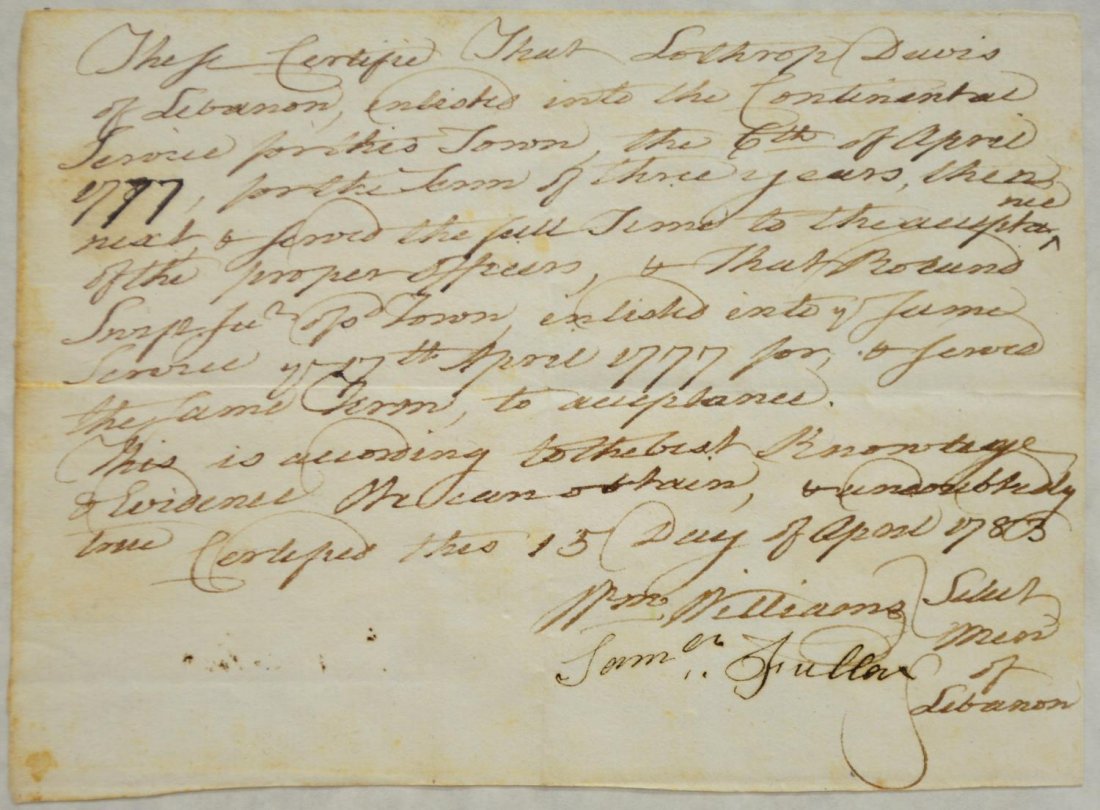 These Certifie That Lothrop Davis
of Lebanon, enlisted into the Continental
Service for this Town, the 6th of April
1777, for the Term of three years, then
next, & served the full Time to the acceptance
of the proper officers, & that Roland
Swift Junr of sd Town, enlisted into ye same
Service ye 17th April 1777 for, & served
the same Term, to acceptance.
This is according to the best Knowledge
& Evidence We can obtain, & undoubtedly
true Certified this 15 Day of April 1783
Wm Williams
Saml Fuller
Select
Men
of
Lebanon